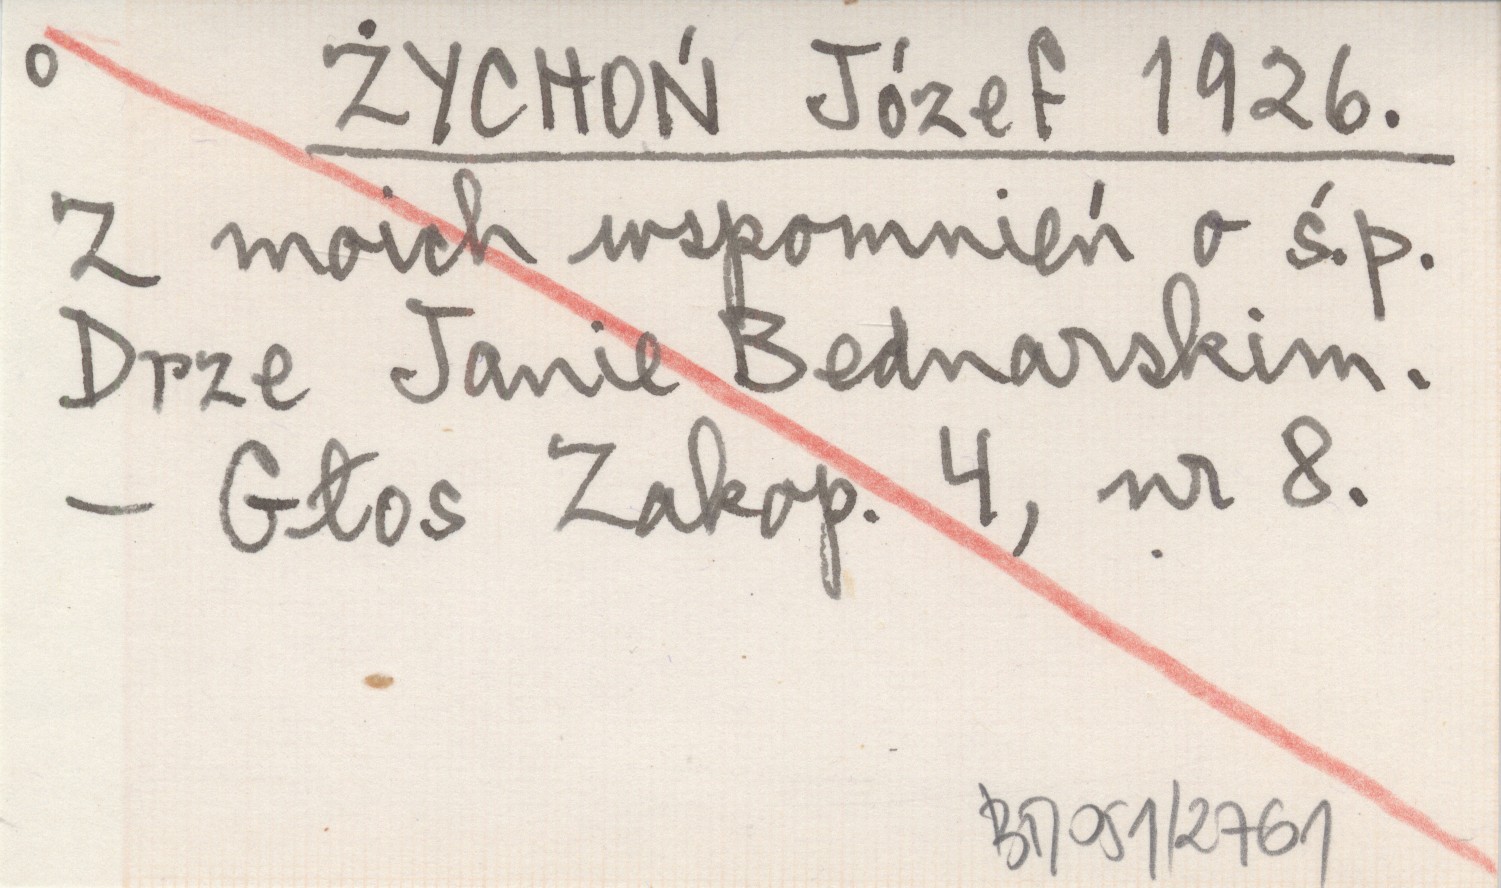 o ŻYCHOŃ Józef 1926.
Z moich wspomnień o ś.p.
Drze Janie Bednarskim.
– Głos Zakop. 4, nr 8.
2761